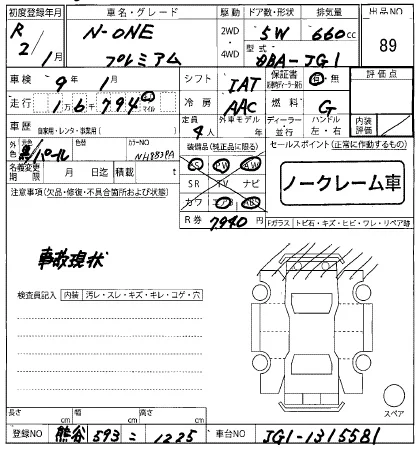 初度登録年月 車名・グレード 駆動 ドア数・形状 排気量 出品NO
R 2/1月 N-ONE プレミアム 2WD・4WD 5W 660cc 89
型式 DBA-JG1
車検 9年 1月 シフト IAT 保証書 有・無 評価点
走行 1万6千794 km マイル 冷房 AAC 燃料 G
車歴 自家用・レンタ・事業用( ) 定員 4人 外車モデル 年 ディーラー・並行 ハンドル 左・右 内装評価
外色 黒パール 色替 カラーNO NH883PA 装備品(純正品に限る) セールスポイント(正常に作動するもの)
名義変更期限 月 日迄 積載 t PS PW AW
SR TV ナビ
カワ エアB ABS
ノークレーム車
注意事項(欠品・修復・不具合箇所および状態) R券 7940円
Fガラス トビ石・キズ・ヒビ・ワレ・リペア跡
事故現状
検査員記入 内装 汚レ・スレ・キズ・キレ・コゲ・穴
スペア
長さ cm 幅 cm 高さ cm
登録NO 熊谷 593 ニ 1225 車台NO JG1-1315581